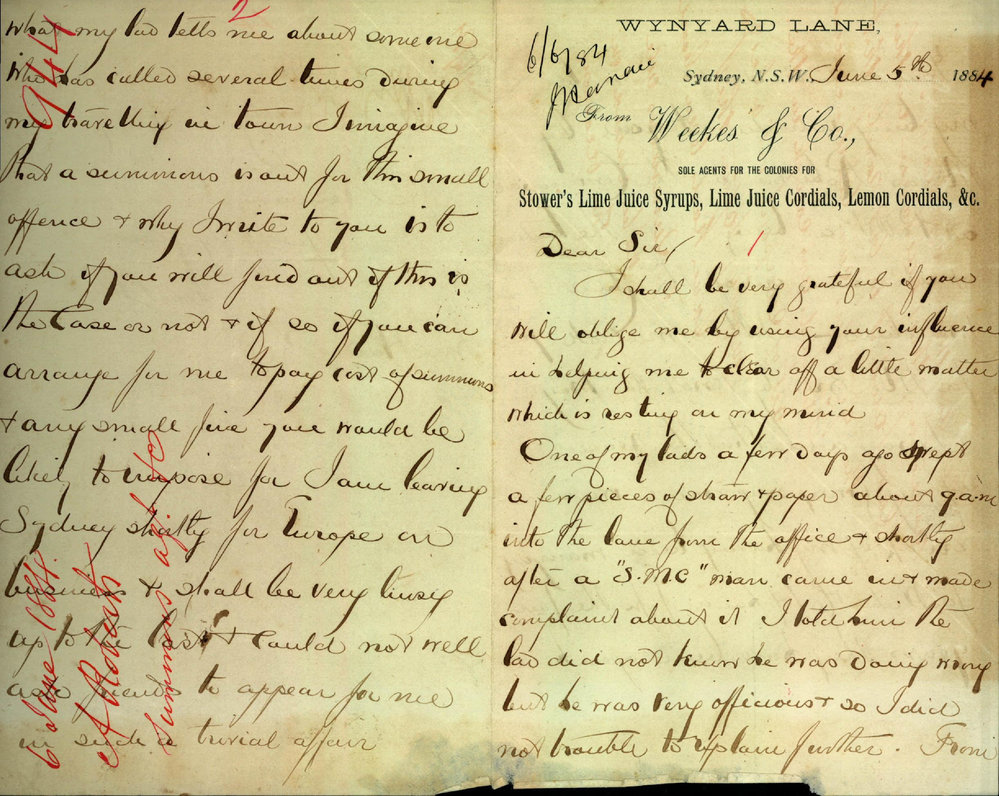 WYNYARD LANE,
6/6/84
Sydney, N.S.W. June 5th 1884
From Weekes & Co.,
SOLE AGENTS FOR THE COLONIES FOR
Stower's Lime Juice Syrups, Lime Juice Cordials, Lemon Cordials, &c.
1
Dear Sir/
I shall be very grateful if you
will oblige me by using your influence
in helping me to clear off a little matter
which is resting on my mind
One of my lads a few days ago swept
a few pieces of straw & paper about 9 a.m
into the lane from the office & shortly
after a "S.M.C" man came in & made
complaint about it I told him the
lad did not know he was doing wrong
but he was very officious & so I did
not trouble to explain further. From
2
what my lad tells me about someone
who has called several times during
my travelling in town I imagine
that a summons is out for this small
offence & why I write to you is to
ask if you will find out if this is
the case or not & if so if you can
arrange for me to pay cost of summons
& any small fine you would be
likely to impose for I am leaving
Sydney shortly for Europe on
business & shall be very busy
up to the last & could not well
ask friends to appear for me
in such a trivial affair
944
6 June 1884
A Roberts
Summons agst